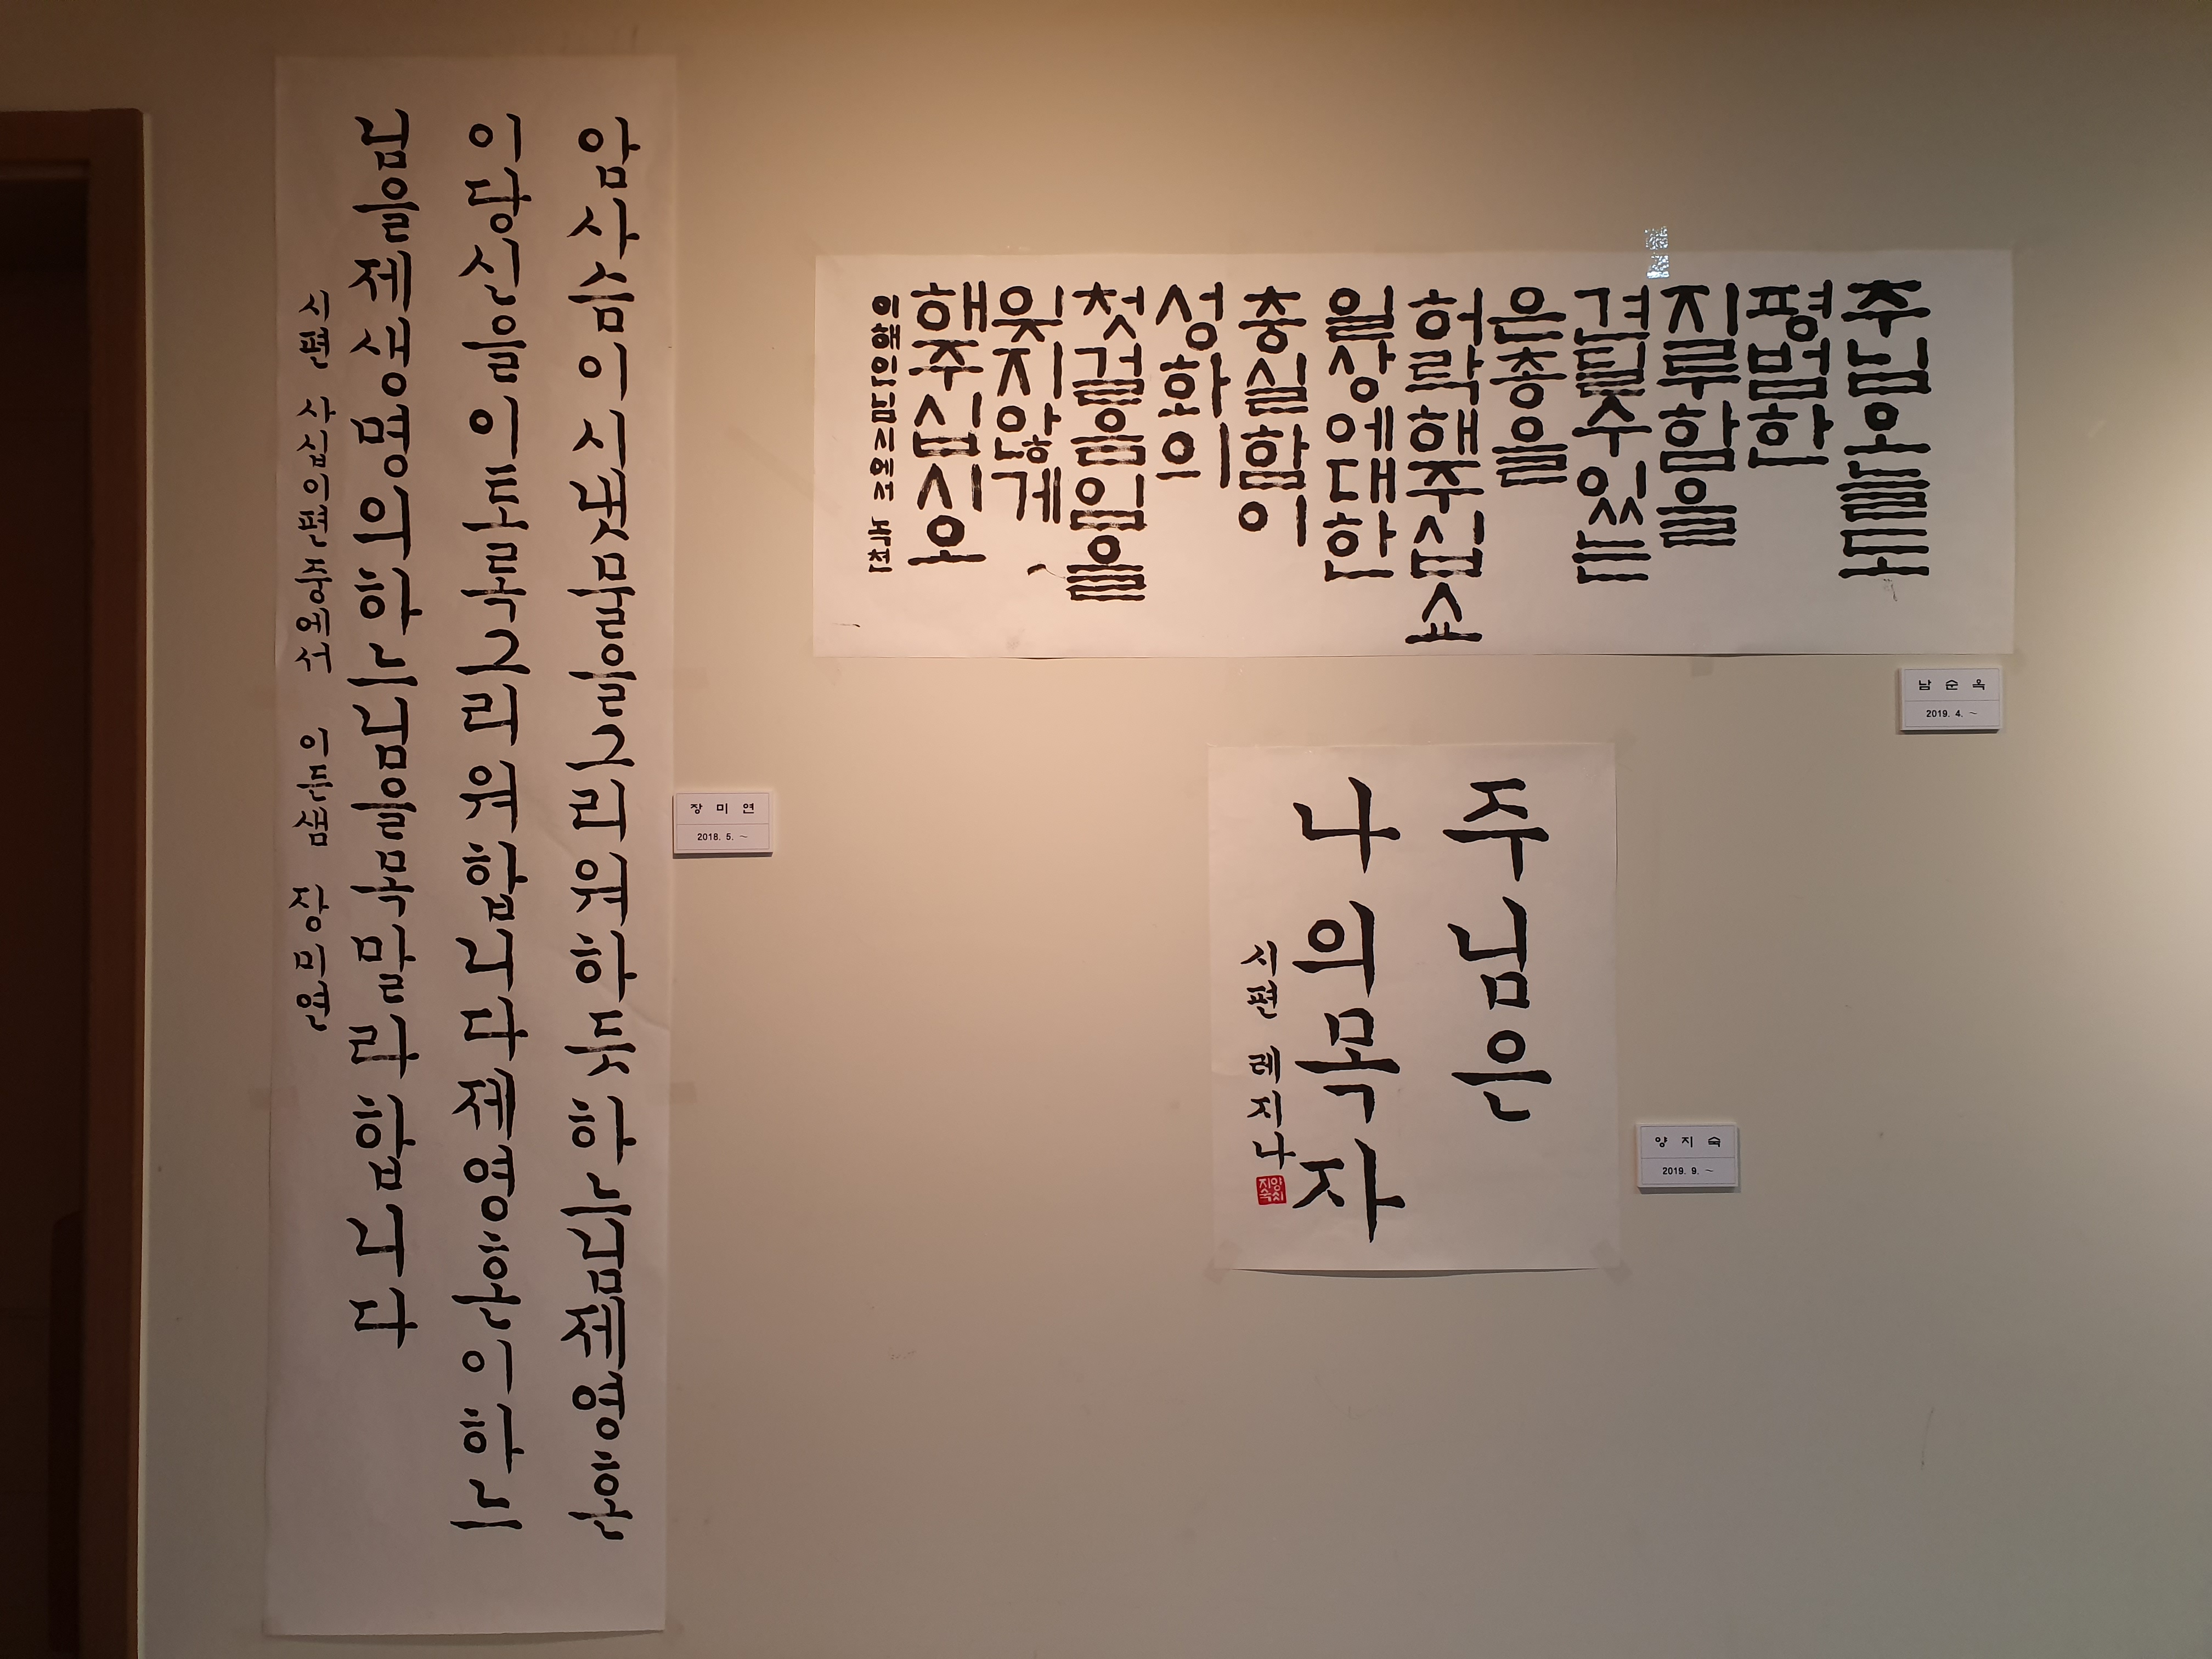 암사슴이시냇물을그리워하듯하느님제영혼
이당신을이토록그리워합니다제영혼이하느
님을제생명의하느님을목말라합니다
시편 사십이편중에서 이든샘 장미연
장 미 연
2018. 5. ~
주님오늘도
평범한
지루함을
견딜수있는
은총을
허락해주십쇼
일상에대한
충실함이
성화의
첫걸음임을
잊지않게
해주십시오
이해인님시에서 녹천
남 순 옥
2019. 4. ~
주님은
나의목자
시편 레지나
양지숙
양 지 숙
2019. 9. ~